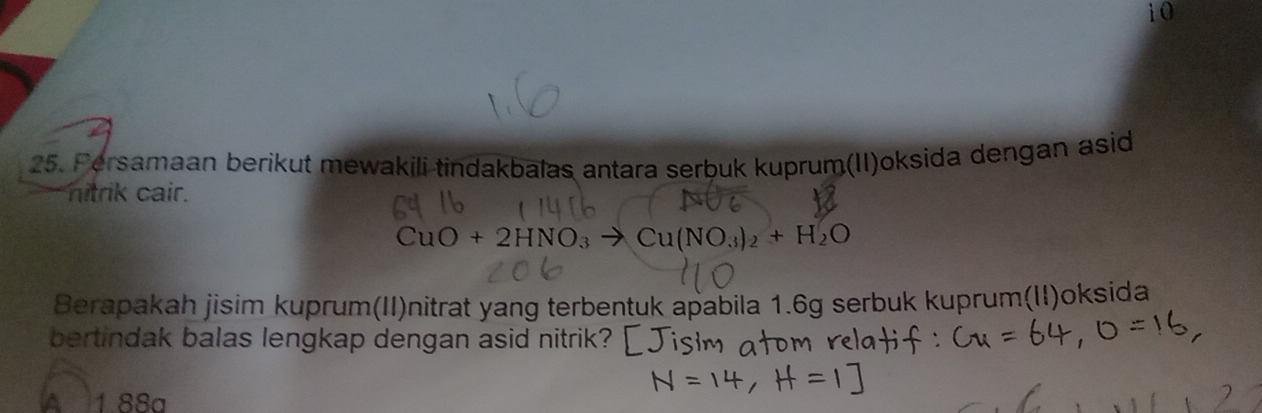 10
1.6
25. Persamaan berikut mewakili tindakbalas antara serbuk kuprum(II)oksida dengan asid
nitrik cair.
64 16 1 14 16
CuO + 2HNO₃ → Cu(NO₃)₂ + H₂O
206 110
Berapakah jisim kuprum(II)nitrat yang terbentuk apabila 1.6g serbuk kuprum(II)oksida
bertindak balas lengkap dengan asid nitrik? [Jisim atom relatif : Cu = 64, O = 16,
N = 14, H = 1]
A 1.88g